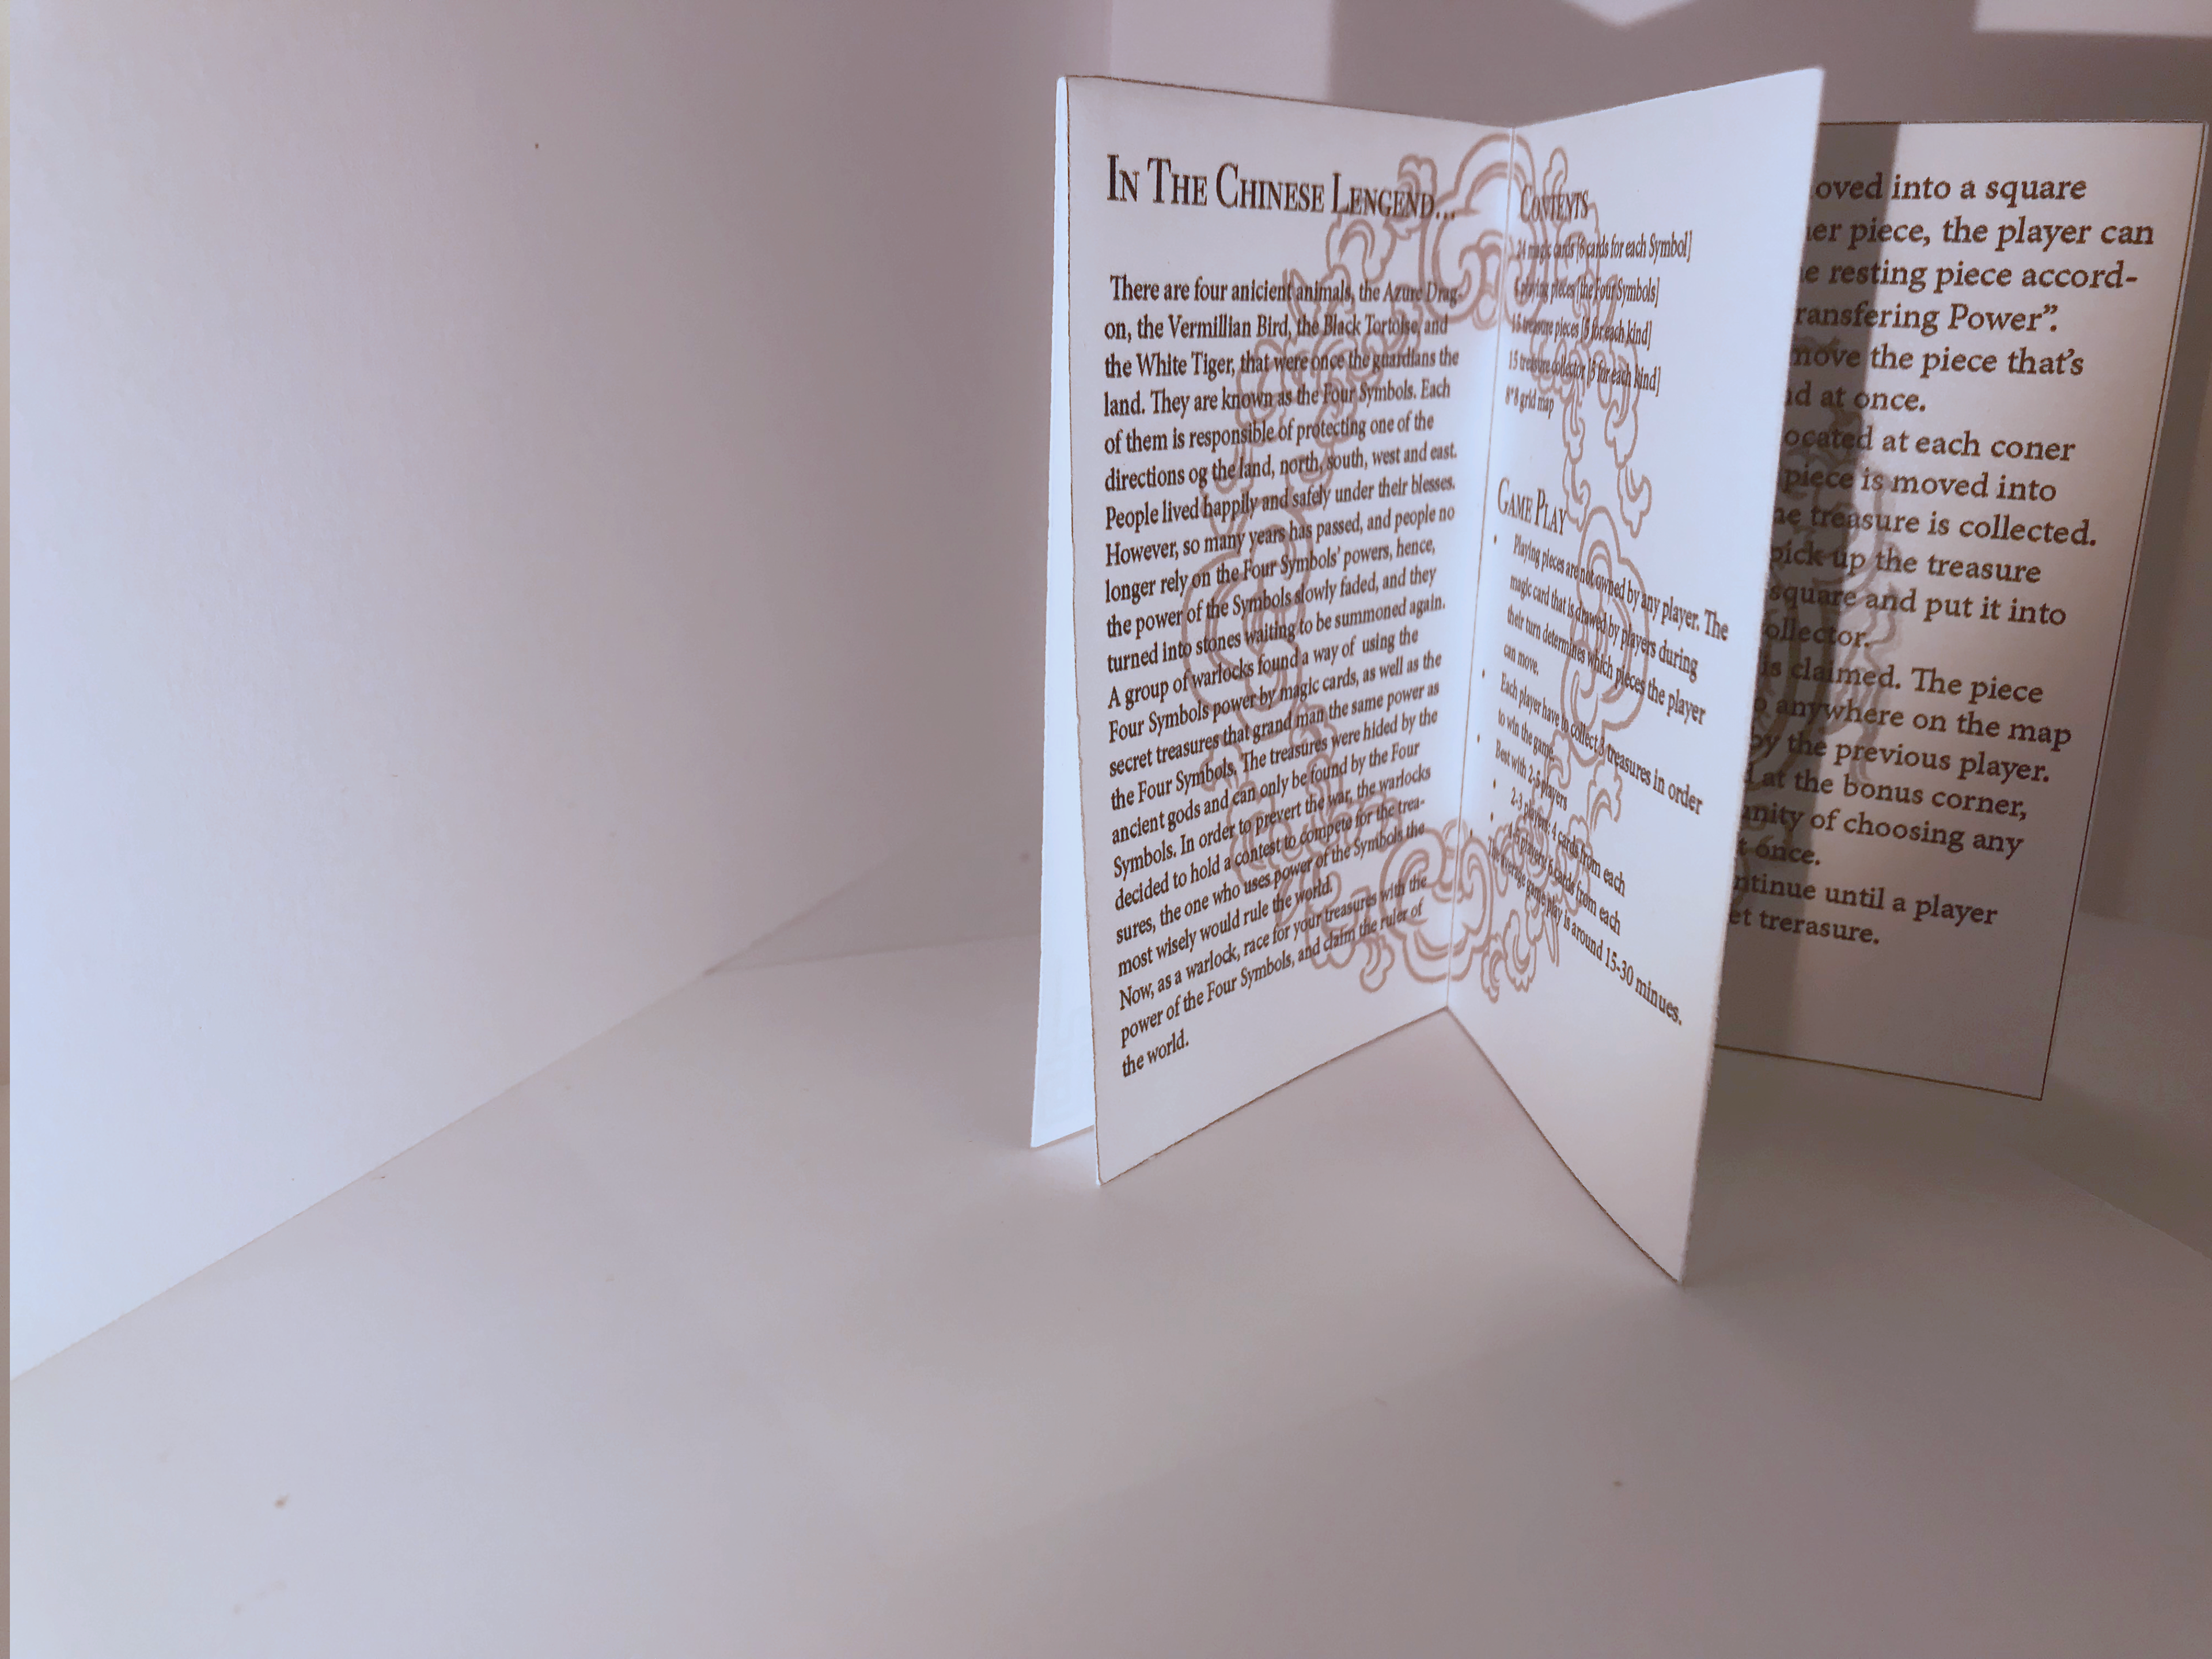 IN THE CHINESE LENGEND...
There are four anicient animals, the Azure Drag-
on, the Vermillian Bird, the Black Tortoise, and
the White Tiger, that were once the guardians the
land. They are known as the Four Symbols. Each
of them is responsible of protecting one of the
directions og the land, north, south, west and east.
People lived happily and safely under their blesses.
However, so many years has passed, and people no
longer rely on the Four Symbols' powers, hence,
the power of the Symbols slowly faded, and they
turned into stones waiting to be summoned again.
A group of warlocks found a way of using the
Four Symbols power by magic cards, as well as the
secret treasures that grand man the same power as
the Four Symbols. The treasures were hided by the
ancient gods and can only be found by the Four
Symbols. In order to prevert the war, the warlocks
decided to hold a contest to compete for the trea-
sures, the one who uses power of the Symbols the
most wisely would rule the world.
Now, as a warlock, race for your treasures with the
power of the Four Symbols, and claim the ruler of
the world.
CONTENTS
24 magic cards [6 cards for each Symbol]
playing pieces [the Four Symbols]
15 treasure pieces [5 for each kind]
15 treasure collector [5 for each kind]
8*8 grid map
GAME PLAY
• Playing pieces are not owned by any player. The
magic card that is drawed by players during
their turn determines which pieces the player
can move.
• Each player have to collect 3 treasures in order
to win the game.
• Best with 2-5 players
• 2-3 players: 4 cards from each
• 4-5 players: 6 cards from each
• The average game play is around 15-30 minues.
oved into a square
er piece, the player can
e resting piece accord-
ransfering Power".
move the piece that's
d at once.
ocated at each coner
piece is moved into
he treasure is collected.
pick up the treasure
square and put it into
ollector.
is claimed. The piece
anywhere on the map
by the previous player.
at the bonus corner,
unity of choosing any
t once.
ntinue until a player
et trerasure.